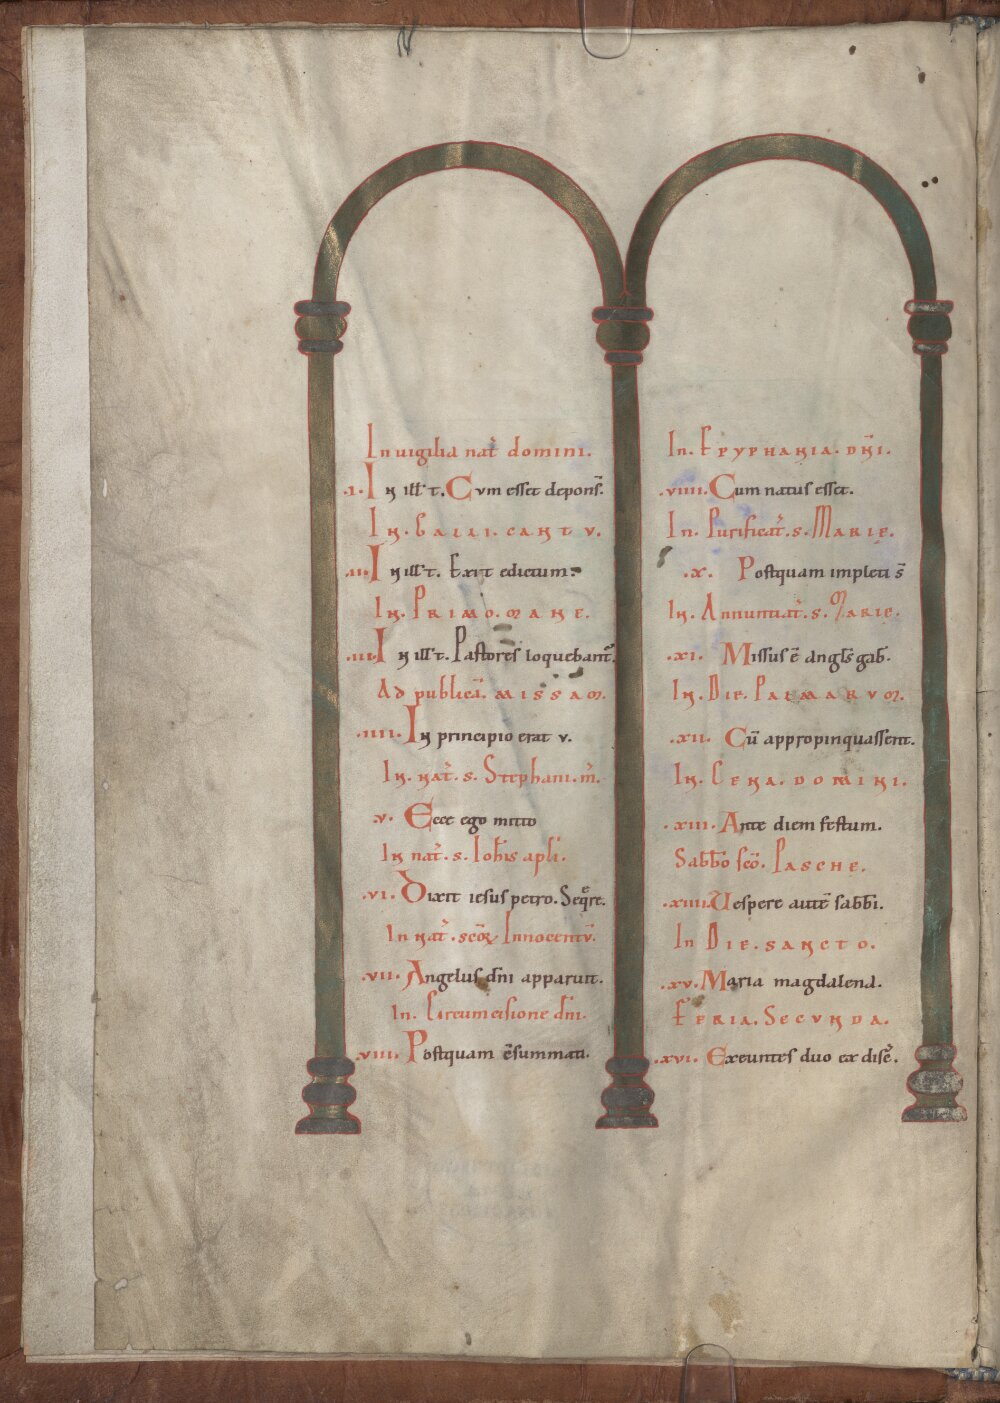 In uigilia nat̄ domini.
.I. In ill̄ t. Cum esset depons̄.
In. Galli. cantu.
.II. In ill̄ t. Exit edictum.
In. Primo. mane.
.III. In ill̄ t. Pastores loquebant̄.
Ad publicā. missam.
.IIII. In principio erat v.
In. nat̄. s. Stephani. m̄.
.V. Ecce ego mitto
In nat̄. s. Ioh̄is apl̄i.
.VI. Dixit iesus petro. Seq̄re.
In nat̄. scōꝝ Innocentū.
.VII. Angelus dn̄i apparuit.
In. Circumcisione dn̄i.
.VIII. Postquam c̄summati.
In. Epyphania. dn̄i.
.VIIII. Cum natus esset.
In. Purificat̄. s. Marie.
.X. Postquam impleti s̄
In. Annuntiat̄. s. Marie.
.XI. Missus ē angl̄s gab̄.
In. Die. Palmarum.
.XII. Cū appropinquassent.
In. Cena. domini.
.XIII. Ante diem festum.
Sabb̄o scō. Pasche.
.XIIII. Uespere autē sabb̄i.
In Die. sancto.
.XV. Maria magdalena.
Feria. Secunda.
.XVI. Exeuntes duo ex disc̄.